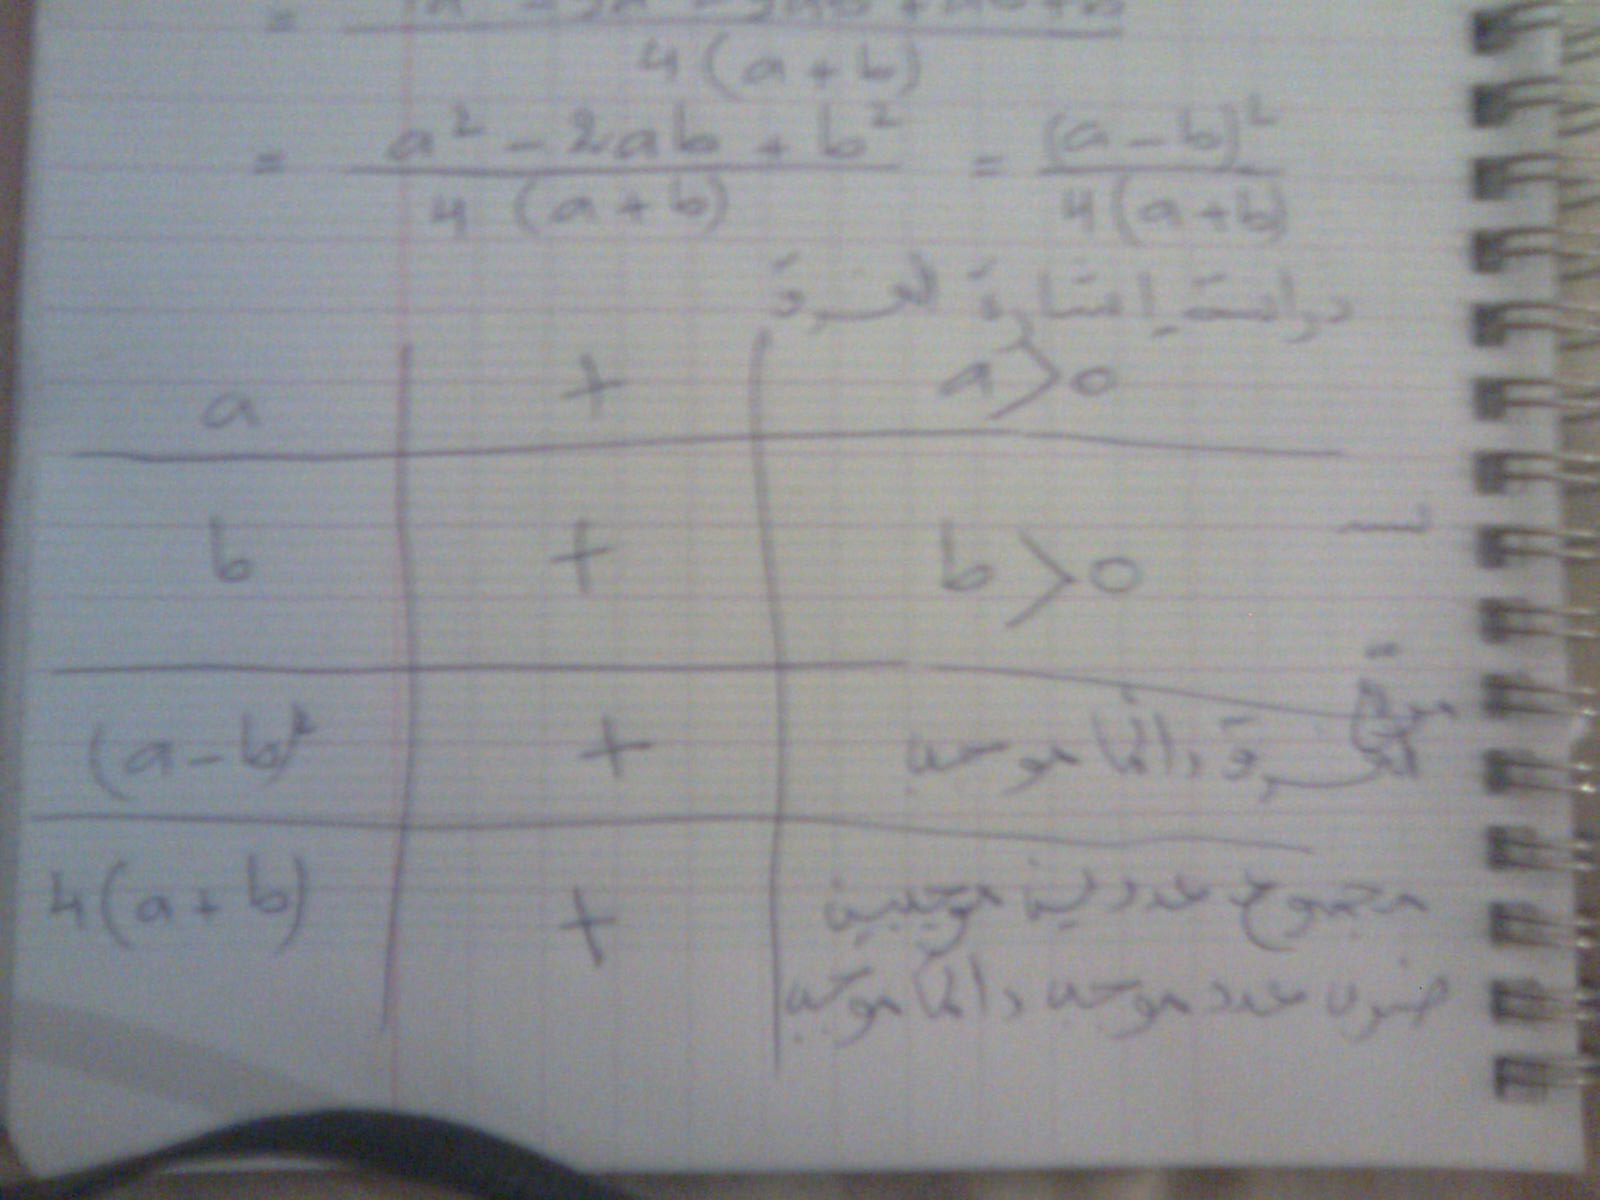 4(a+b)
= a² - 2ab + b² / 4(a+b) = (a-b)² / 4(a+b)
دراسة إشارة الفرق
a + a>0
b + b>0
(a-b)² + الفرق دائما موجب
4(a+b) + مجموع عددين موجبين
ضرب عدد موجب دائما موجب